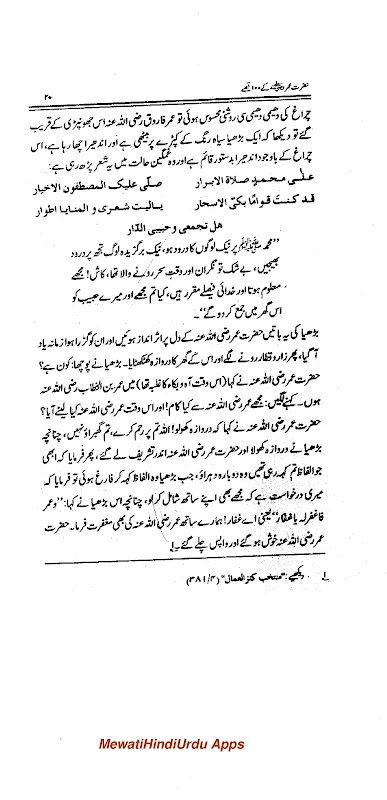 حضرت عمرؓ کے ۱۰۰ قصے
۲۰
چراغ کی دھیمی دھیمی سی روشنی محسوس ہوئی تو عمر فاروق رضی اللہ عنہ اس جھونپڑی کے قریب
گئے تو دیکھا کہ ایک بڑھیا سیاہ رنگ کے کپڑے پر بیٹھی ہے اور اندھیرا چھا رہا ہے، اس
چراغ کے باوجود اندھیرا بدستور قائم ہے اور وہ غمگین حالت میں یہ شعر پڑھ رہی ہے:
علی محمدٍ صلاة الابرار صلّی علیک المصطفون الاخیار
قد کنتَ قوامًا بکیّ الاسحار یالیت شعری و المنایا اطوار
هل تجمعی و حبیبی الدّار
”محمد ﷺ پر نیک لوگوں کا درود ہو، نیک برگزیدہ لوگ تجھ پر درود
بھیجیں، بے شک تو نگران اور وقتِ سحر رونے والا تھا، کاش! مجھے
معلوم ہوتا اور خدائی فیصلے مقرر ہیں، کیا تم مجھے اور میرے حبیب کو
اس گھر میں جمع کر دو گے“۔
بڑھیا کی یہ باتیں حضرت عمر رضی اللہ عنہ کے دل پر اثر انداز ہوئیں اور ان کو گزرا ہوا زمانہ یاد
آ گیا، پھر زار و قطار رونے لگے اور اس کے گھر کا دروازہ کھٹکھٹایا۔ بڑھیا نے پوچھا: کون ہے؟
حضرت عمر رضی اللہ عنہ نے کہا (اس وقت آہ و بکاء کا غلبہ تھا) میں عمر بن الخطاب رضی اللہ عنہ
ہوں۔ کہنے لگیں: مجھے عمر رضی اللہ عنہ سے کیا کام! اور اس وقت عمر رضی اللہ عنہ کیا لینے آیا؟
حضرت عمر رضی اللہ عنہ نے کہا کہ دروازہ کھولو! اللہ تم پر رحم کرے، تم گھبراؤ نہیں، چنانچہ
بڑھیا نے دروازہ کھولا اور حضرت عمر رضی اللہ عنہ اندر تشریف لے گئے، پھر فرمایا کہ ابھی
جو الفاظ تم کہہ رہی تھیں وہ دوبارہ دہراؤ، جب بڑھیا وہ الفاظ کہہ کر فارغ ہوئی تو فرمایا کہ
میری درخواست ہے کہ مجھے بھی اپنے ساتھ شامل کر لو، چنانچہ اس بڑھیا نے کہا: ”وعمر
فاغفرله یاغفار“ یعنی اے غفار! ہمارے ساتھ عمر رضی اللہ عنہ کی بھی مغفرت فرما۔ حضرت
عمر رضی اللہ عنہ خوش ہو گئے اور واپس چلے گئے۔ لے
لے دیکھیے: ”منتخب کنز العمال“ (۳۸۱/۴)
MewatiHindiUrdu Apps